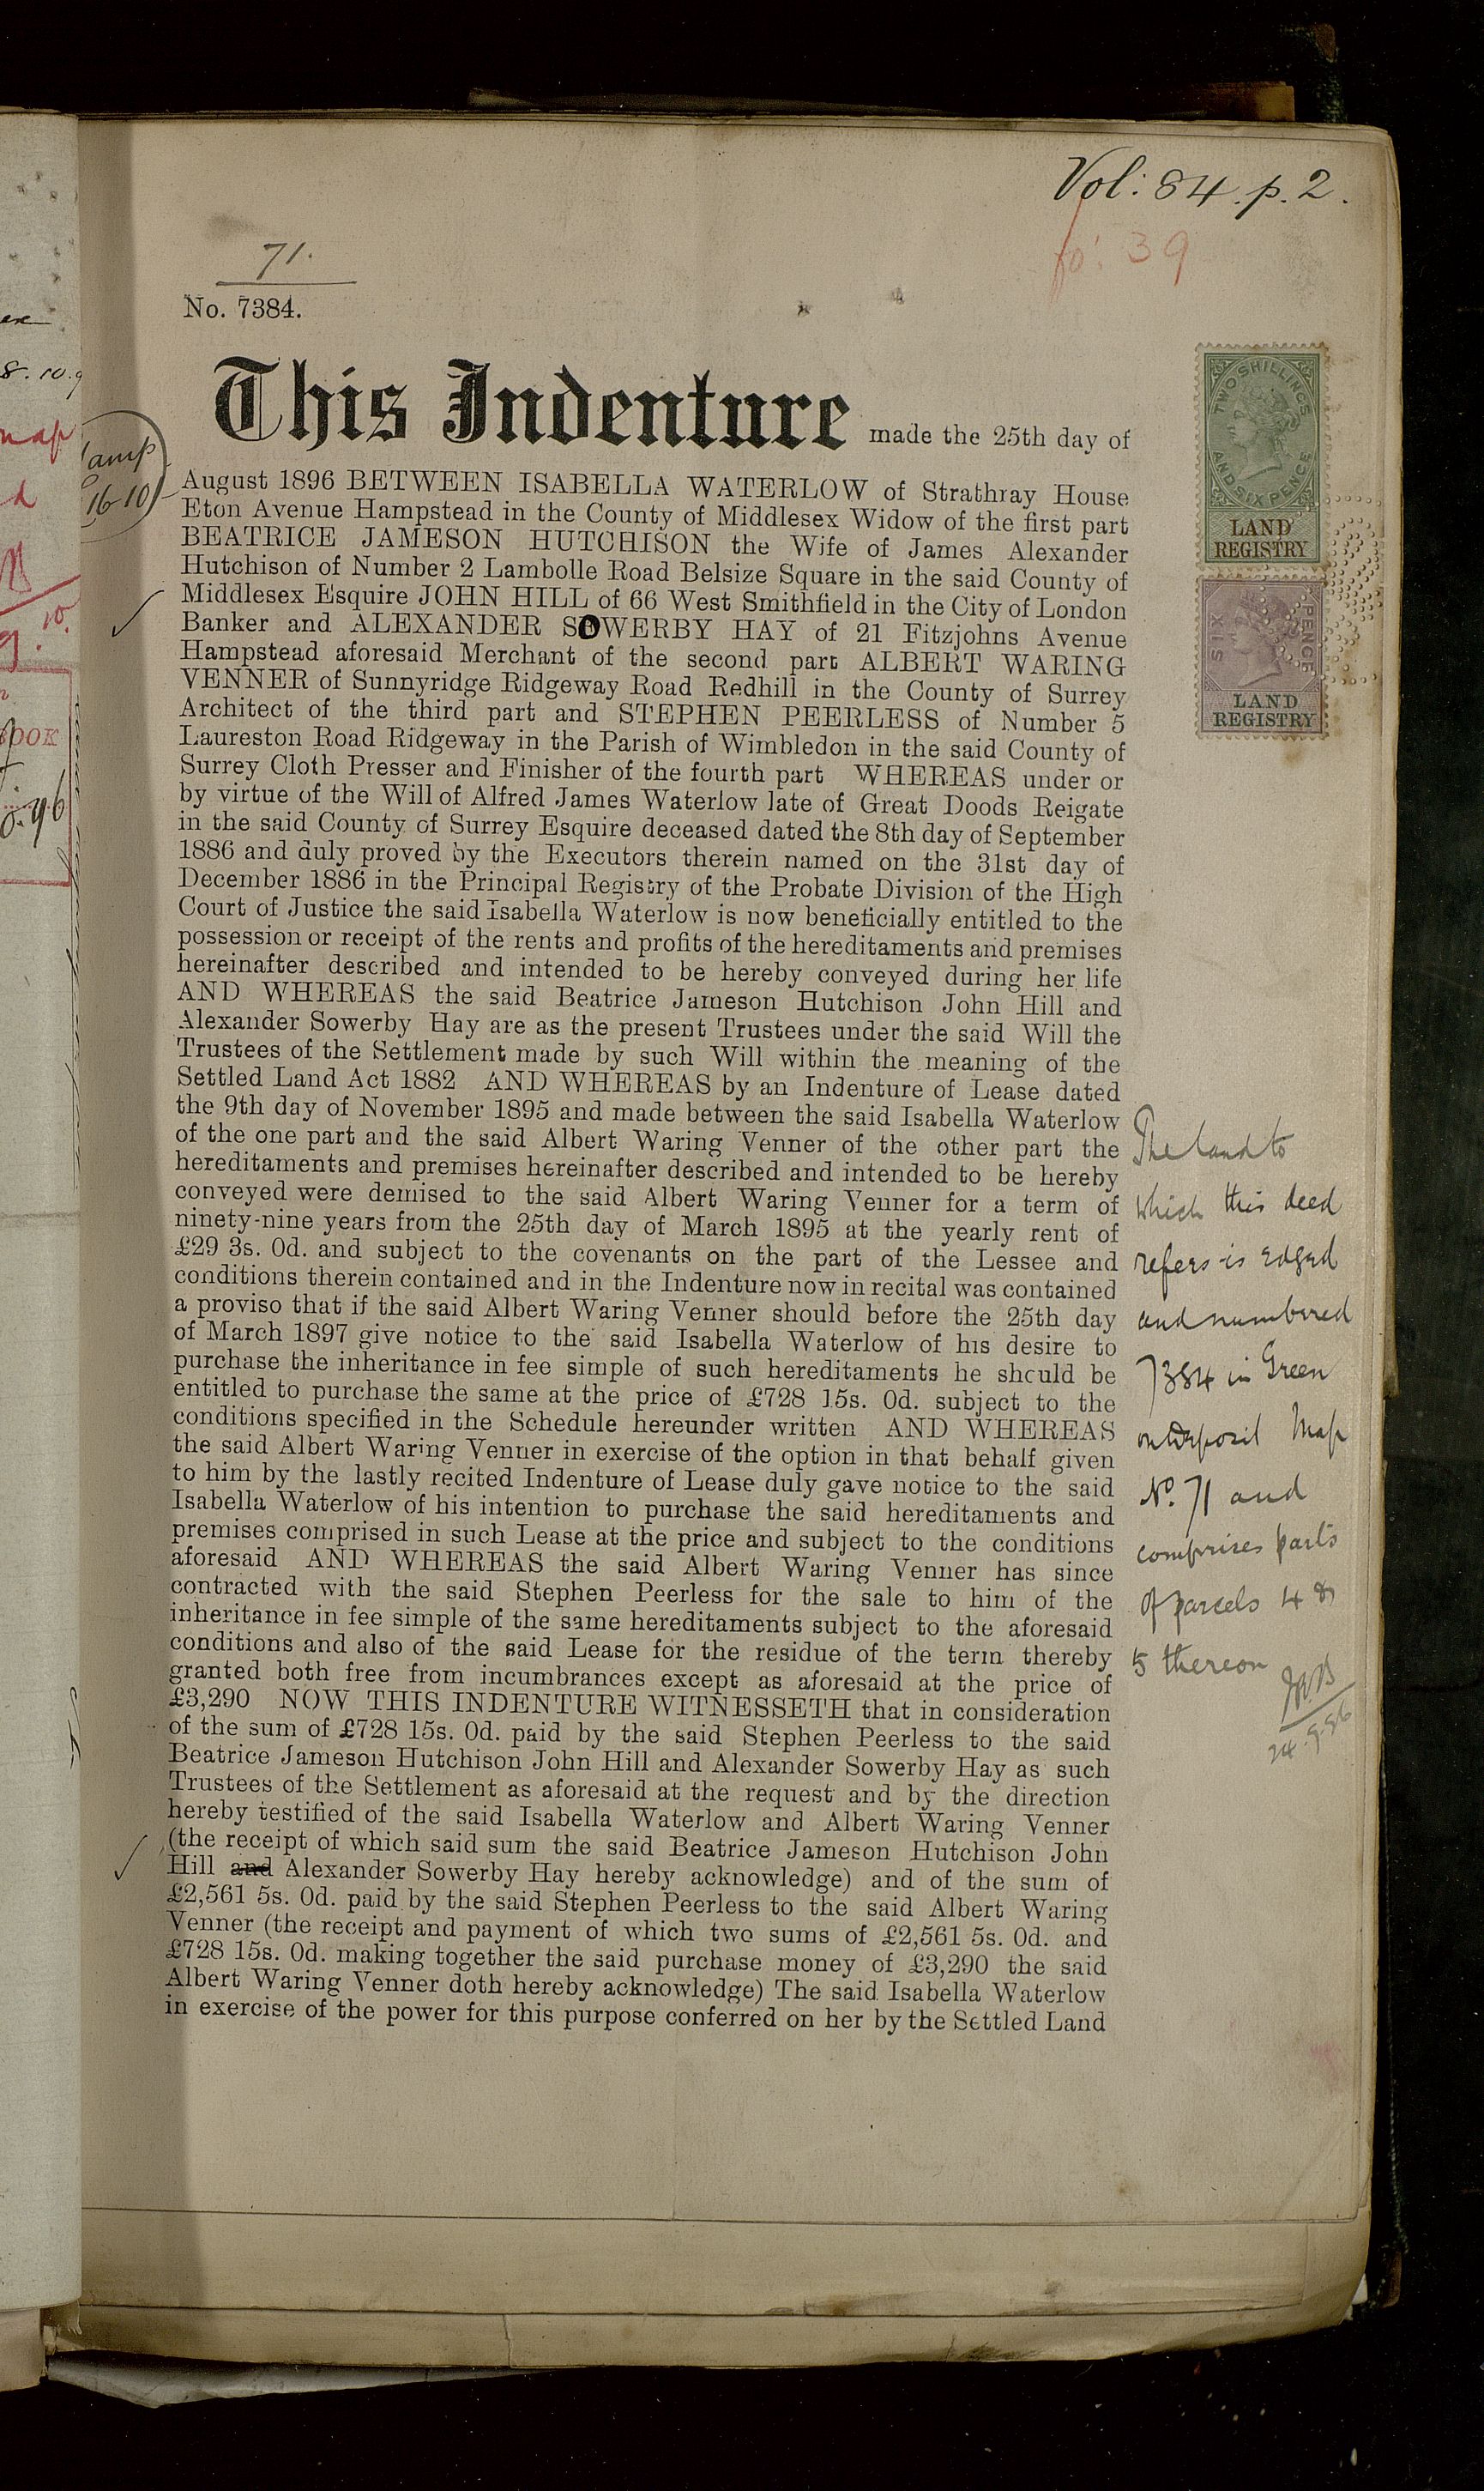 Vol: 84. p. 2.
fo: 39
71.
No. 7384.
This Indenture made the 25th day of
August 1896 BETWEEN ISABELLA WATERLOW of Strathray House
Eton Avenue Hampstead in the County of Middlesex Widow of the first part
BEATRICE JAMESON HUTCHISON the Wife of James Alexander
Hutchison of Number 2 Lambolle Road Belsize Square in the said County of
Middlesex Esquire JOHN HILL of 66 West Smithfield in the City of London
Banker and ALEXANDER SOWERBY HAY of 21 Fitzjohns Avenue
Hampstead aforesaid Merchant of the second part ALBERT WARING
VENNER of Sunnyridge Ridgeway Road Redhill in the County of Surrey
Architect of the third part and STEPHEN PEERLESS of Number 5
Laureston Road Ridgeway in the Parish of Wimbledon in the said County of
Surrey Cloth Presser and Finisher of the fourth part WHEREAS under or
by virtue of the Will of Alfred James Waterlow late of Great Doods Reigate
in the said County of Surrey Esquire deceased dated the 8th day of September
1886 and duly proved by the Executors therein named on the 31st day of
December 1886 in the Principal Registry of the Probate Division of the High
Court of Justice the said Isabella Waterlow is now beneficially entitled to the
possession or receipt of the rents and profits of the hereditaments and premises
hereinafter described and intended to be hereby conveyed during her life
AND WHEREAS the said Beatrice Jameson Hutchison John Hill and
Alexander Sowerby Hay are as the present Trustees under the said Will the
Trustees of the Settlement made by such Will within the meaning of the
Settled Land Act 1882 AND WHEREAS by an Indenture of Lease dated
the 9th day of November 1895 and made between the said Isabella Waterlow
of the one part and the said Albert Waring Venner of the other part the
hereditaments and premises hereinafter described and intended to be hereby
conveyed were demised to the said Albert Waring Venner for a term of
ninety-nine years from the 25th day of March 1895 at the yearly rent of
£29 3s. 0d. and subject to the covenants on the part of the Lessee and
conditions therein contained and in the Indenture now in recital was contained
a proviso that if the said Albert Waring Venner should before the 25th day
of March 1897 give notice to the said Isabella Waterlow of his desire to
purchase the inheritance in fee simple of such hereditaments he should be
entitled to purchase the same at the price of £728 15s. 0d. subject to the
conditions specified in the Schedule hereunder written AND WHEREAS
the said Albert Waring Venner in exercise of the option in that behalf given
to him by the lastly recited Indenture of Lease duly gave notice to the said
Isabella Waterlow of his intention to purchase the said hereditaments and
premises comprised in such Lease at the price and subject to the conditions
aforesaid AND WHEREAS the said Albert Waring Venner has since
contracted with the said Stephen Peerless for the sale to him of the
inheritance in fee simple of the same hereditaments subject to the aforesaid
conditions and also of the said Lease for the residue of the term thereby
granted both free from incumbrances except as aforesaid at the price of
£3,290 NOW THIS INDENTURE WITNESSETH that in consideration
of the sum of £728 15s. 0d. paid by the said Stephen Peerless to the said
Beatrice Jameson Hutchison John Hill and Alexander Sowerby Hay as such
Trustees of the Settlement as aforesaid at the request and by the direction
hereby testified of the said Isabella Waterlow and Albert Waring Venner
(the receipt of which said sum the said Beatrice Jameson Hutchison John
Hill and Alexander Sowerby Hay hereby acknowledge) and of the sum of
£2,561 5s. 0d. paid by the said Stephen Peerless to the said Albert Waring
Venner (the receipt and payment of which two sums of £2,561 5s. 0d. and
£728 15s. 0d. making together the said purchase money of £3,290 the said
Albert Waring Venner doth hereby acknowledge) The said Isabella Waterlow
in exercise of the power for this purpose conferred on her by the Settled Land
TWO SHILLINGS
AND SIX PENCE
LAND
REGISTRY
SIX PENCE
LAND
REGISTRY
The land to
which this deed
refers is edged
and numbered
7384 in Green
on deposit Map
No. 71 and
comprises parts
of parcels 4 &
5 thereon